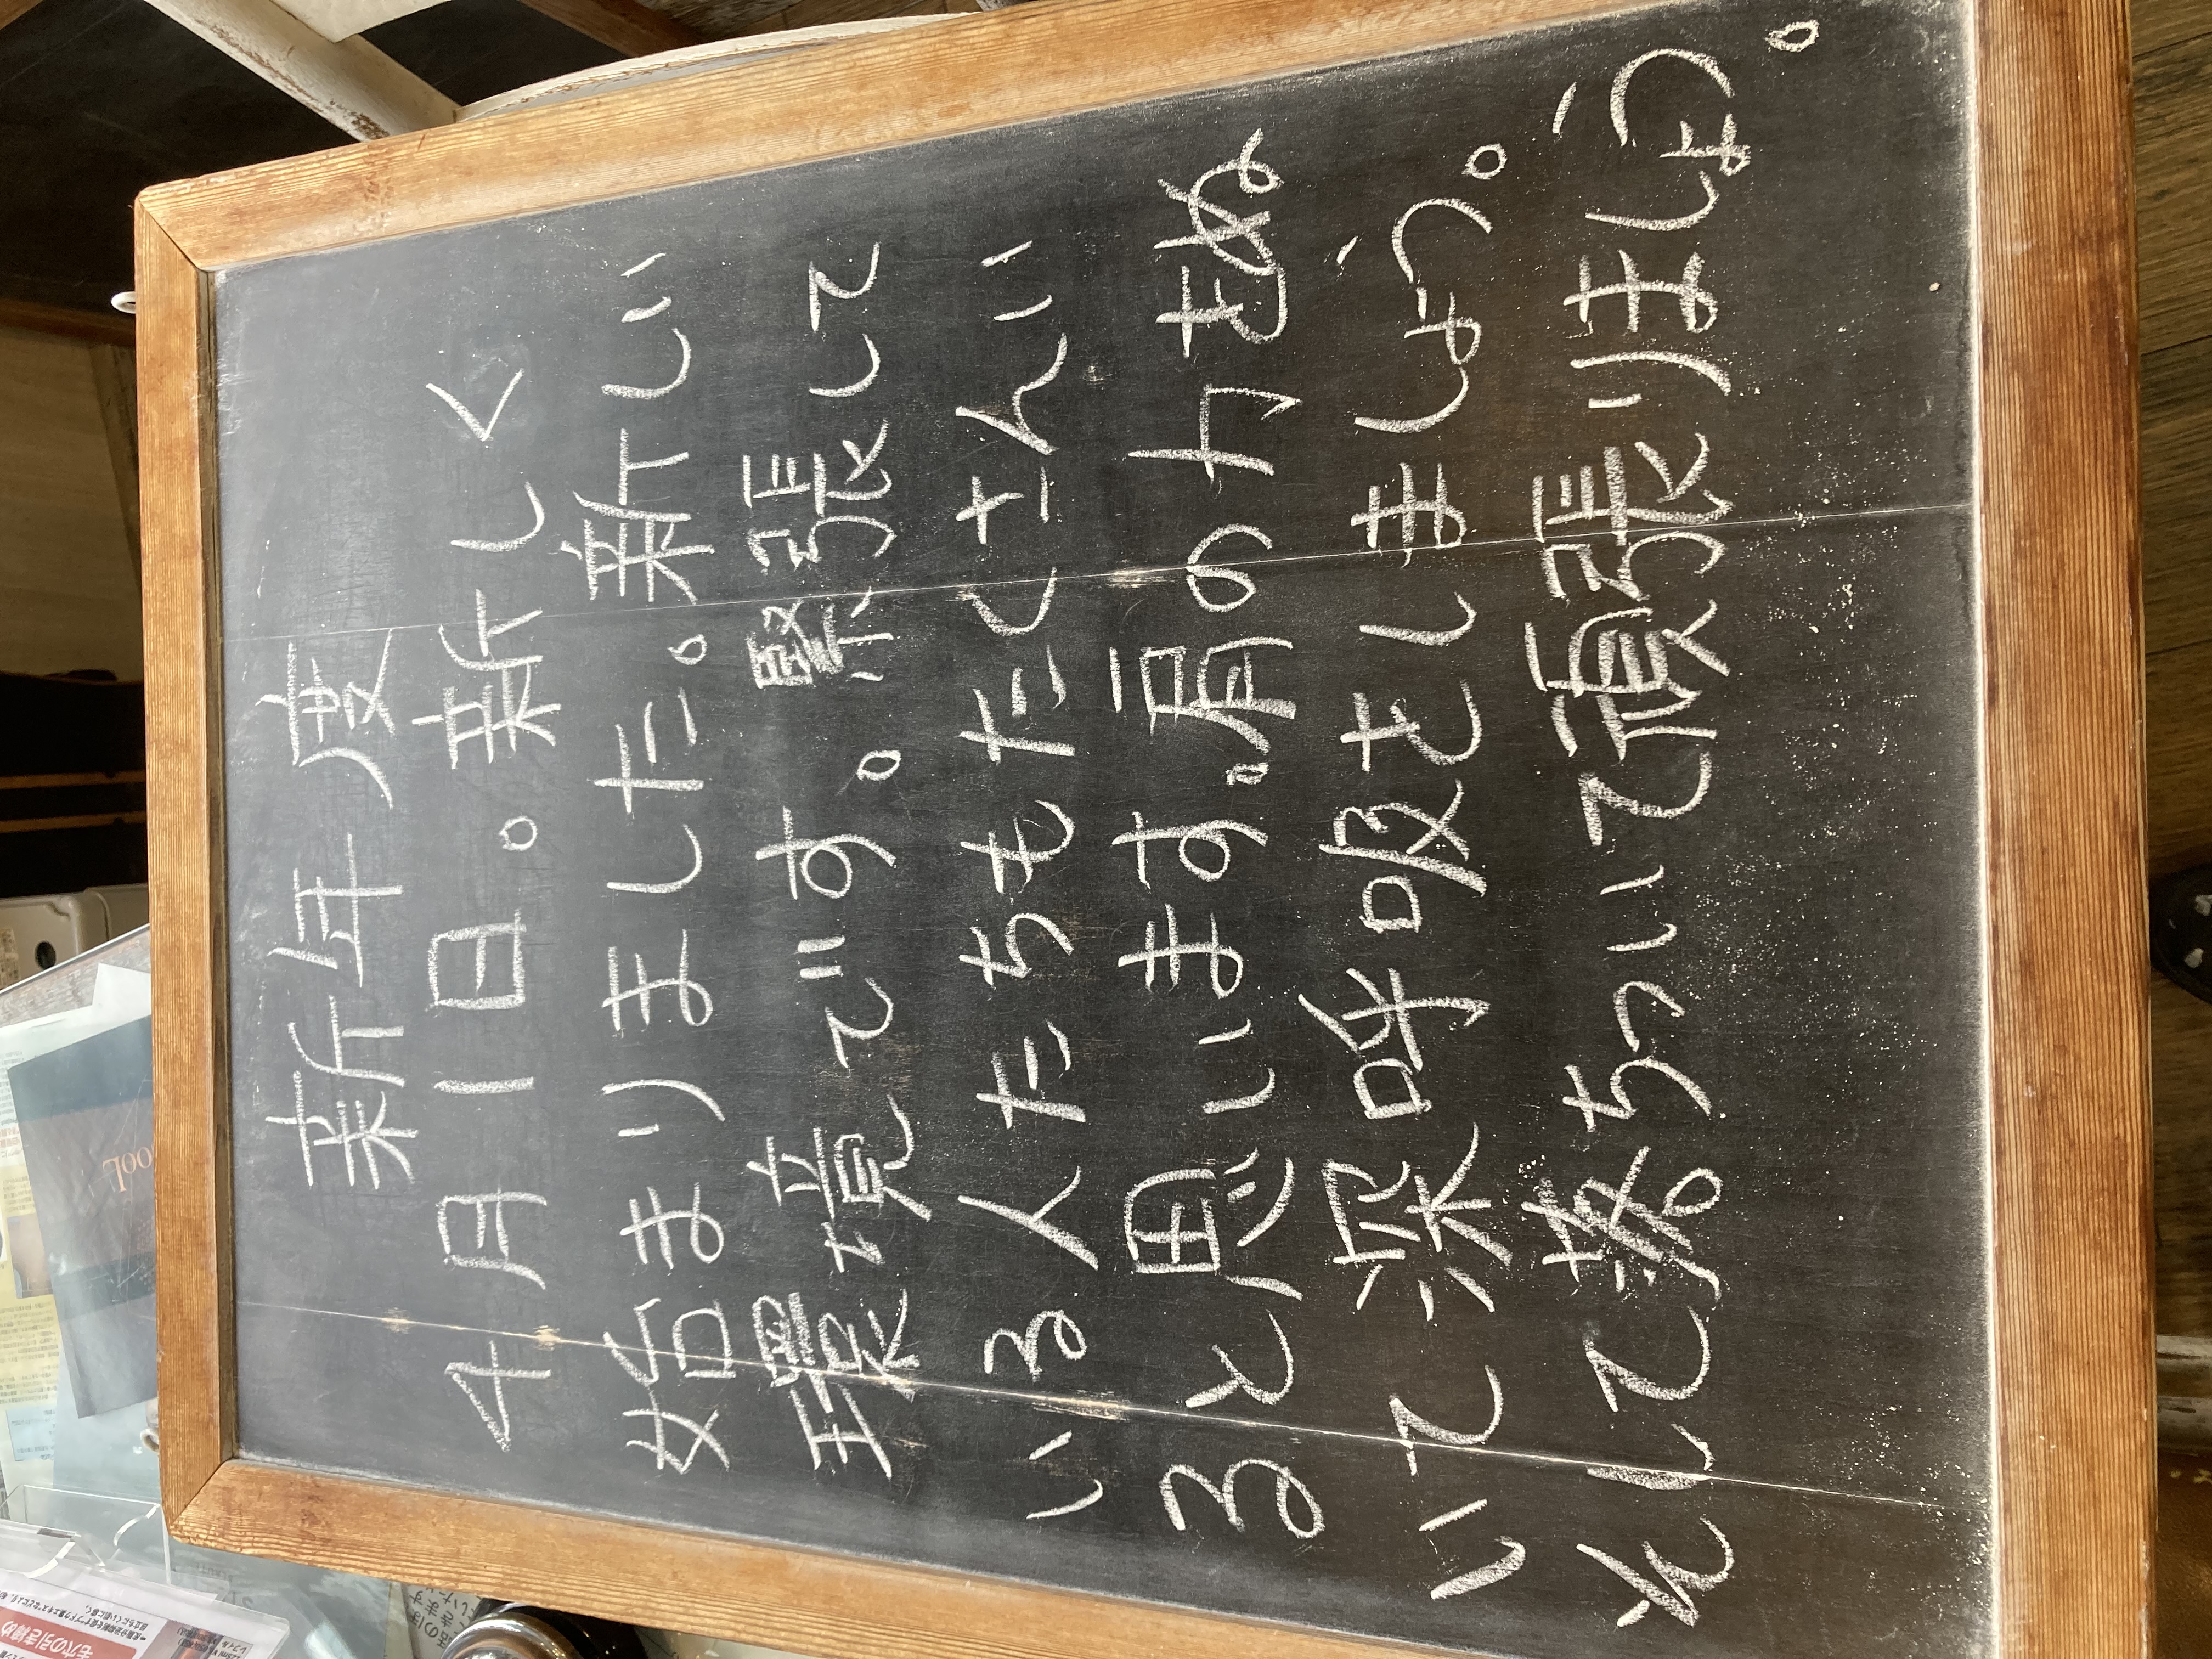 新年度
4月1日。新しく
始まりました。新しい
環境です。緊張して
いる人たちもたくさんい
ると思います。肩の力をぬ
いて深呼吸をしましょう。
そして落ちついて頑張りましょう。
毛穴の引き締め